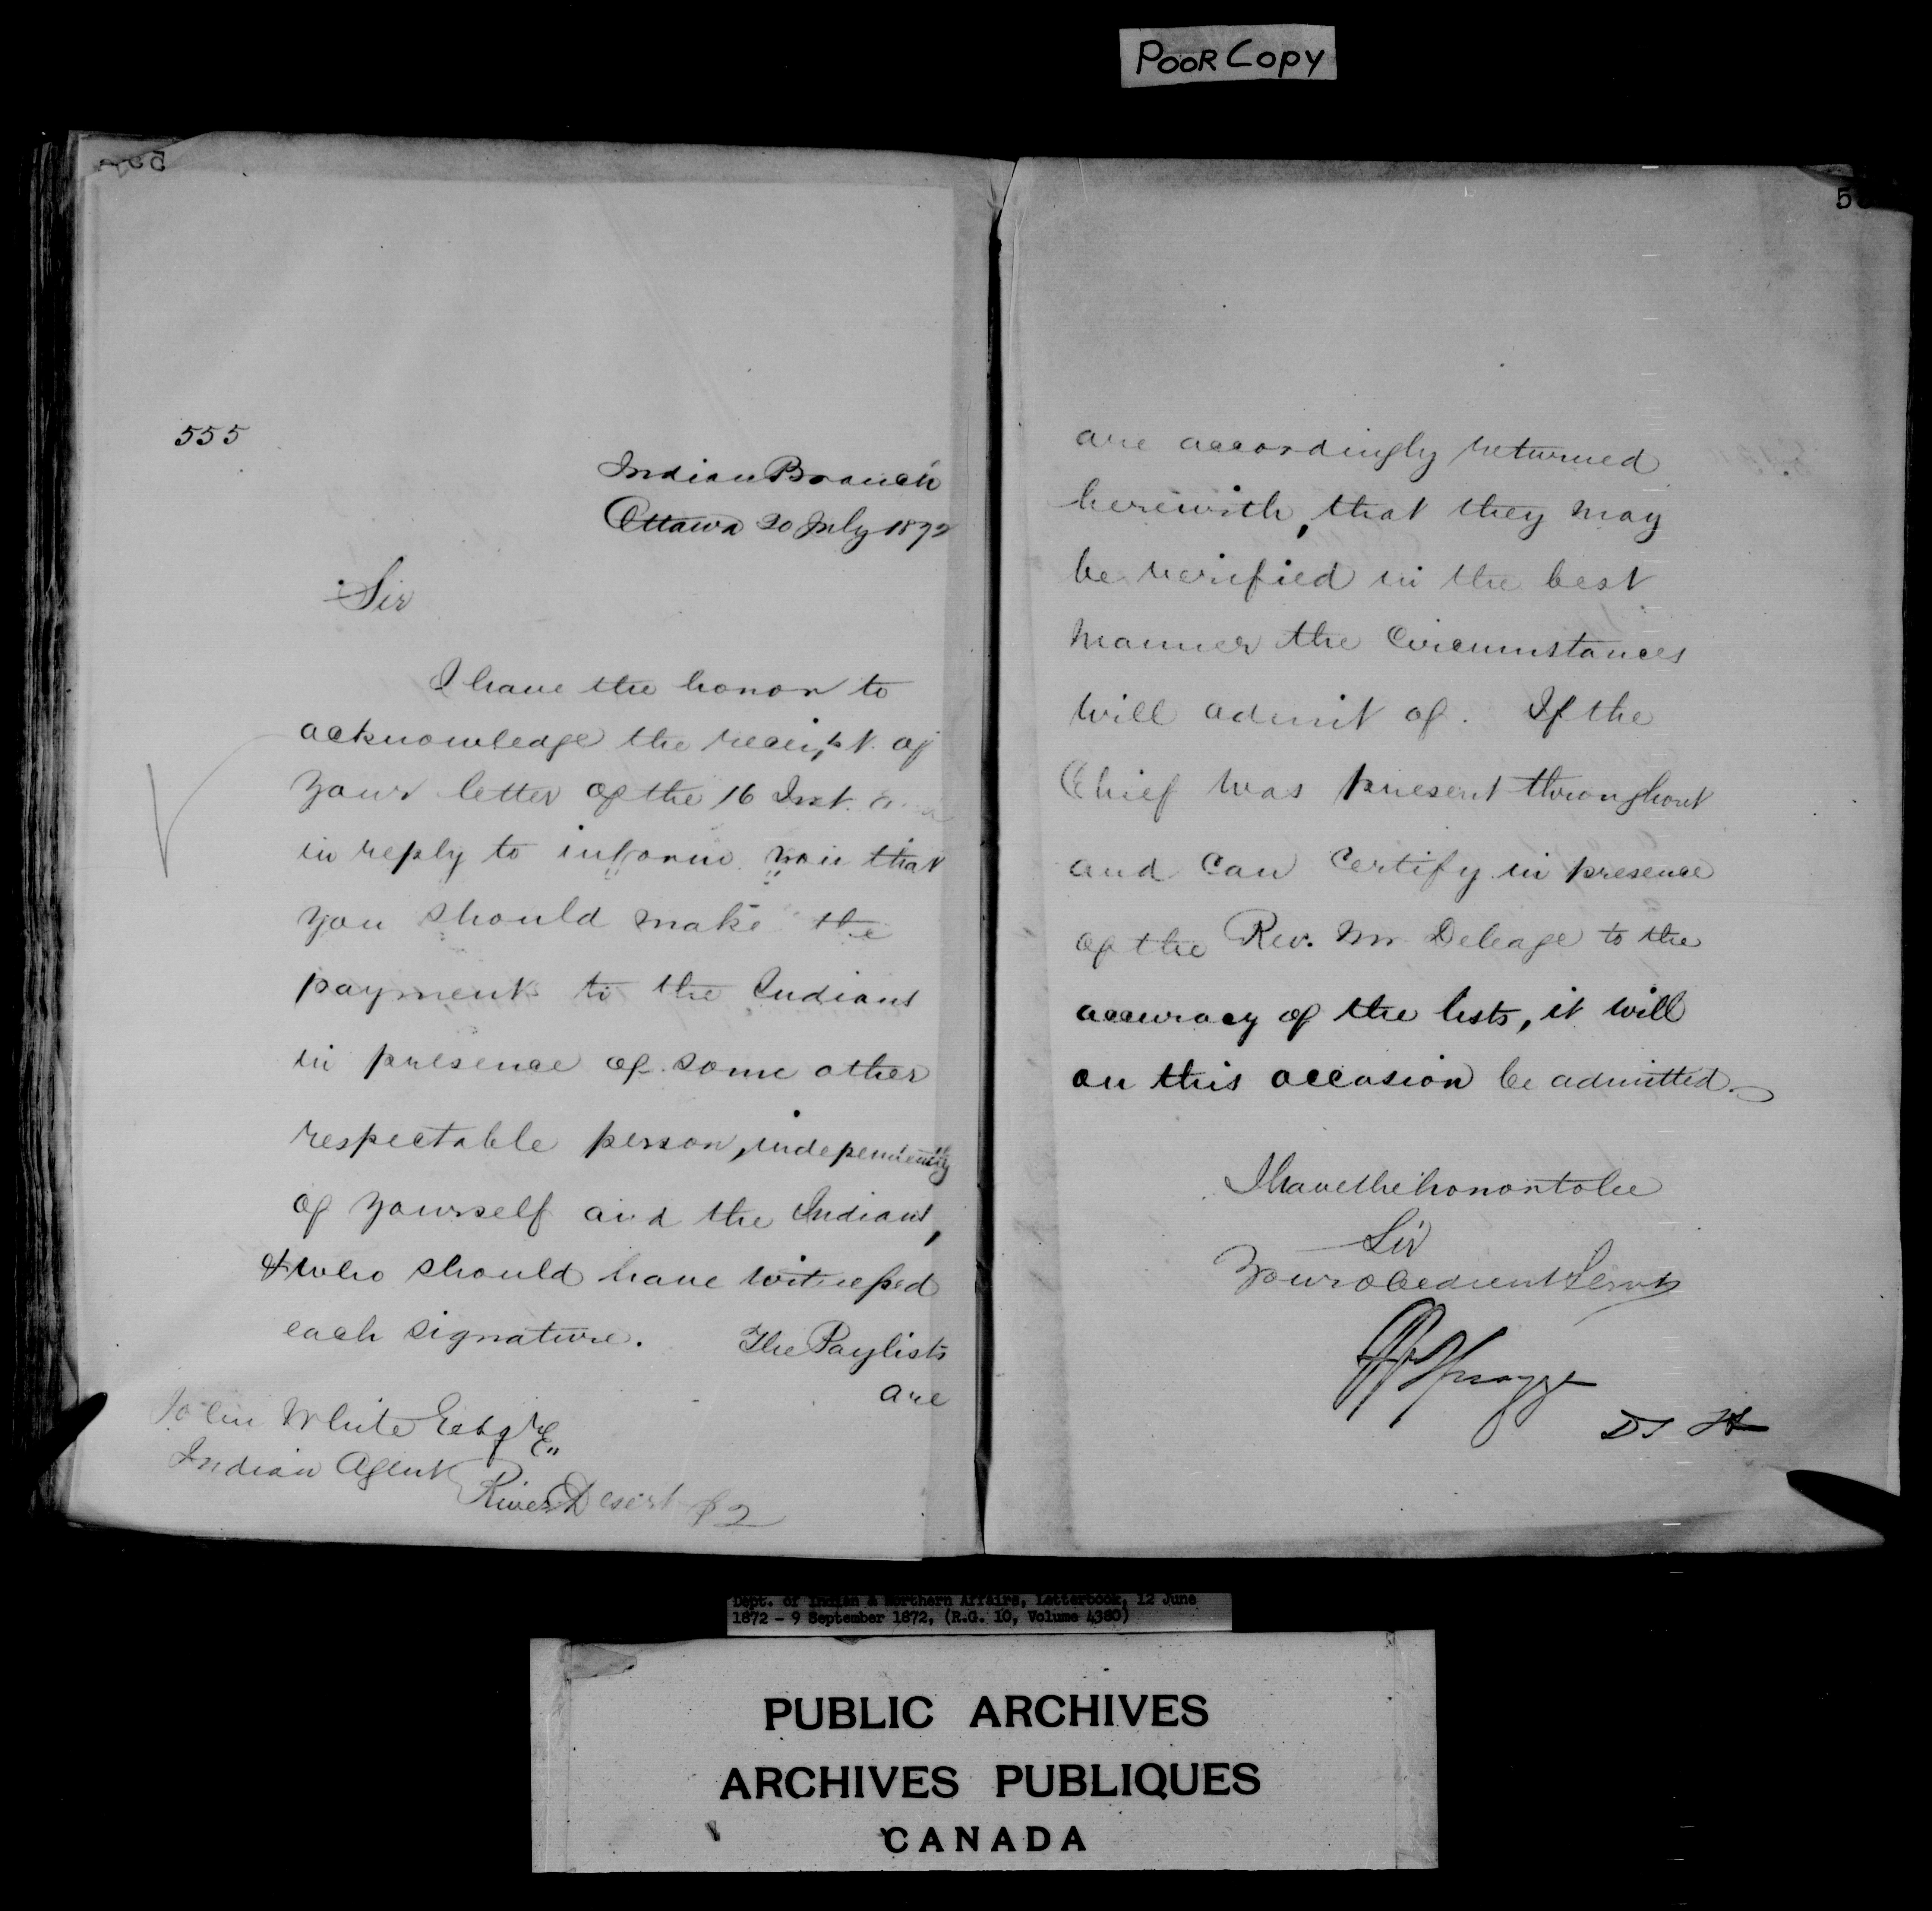 POOR COPY
555
Indian Branch
Ottawa 20 July 1872
Sir
I have the honor to
acknowledge the receipt of
your letter of the 16 Inst. and
in reply to inform you that
you should make the
payments to the Indians
in presence of some other
respectable person, independently
of yourself and the Indians,
& who should have witnessed
each signature. The Paylists
are
John White Esqre
Indian Agent
River Desert
P 2
5
are accordingly returned
herewith, that they may
be verified in the best
manner the Circumstances
will admit of. If the
Chief was present throughout
and can Certify in presence
of the Rev. Mr Deleage to the
accuracy of the lists, it will
on this occasion be admitted.
I have the honor to be
Sir
Your obedient Servt
Spragge
D S
Dept. of Indian & Northern Affairs, Letterbook, 12 June
1872 - 9 September 1872, (R.G. 10, Volume 4380)
PUBLIC ARCHIVES
ARCHIVES PUBLIQUES
CANADA